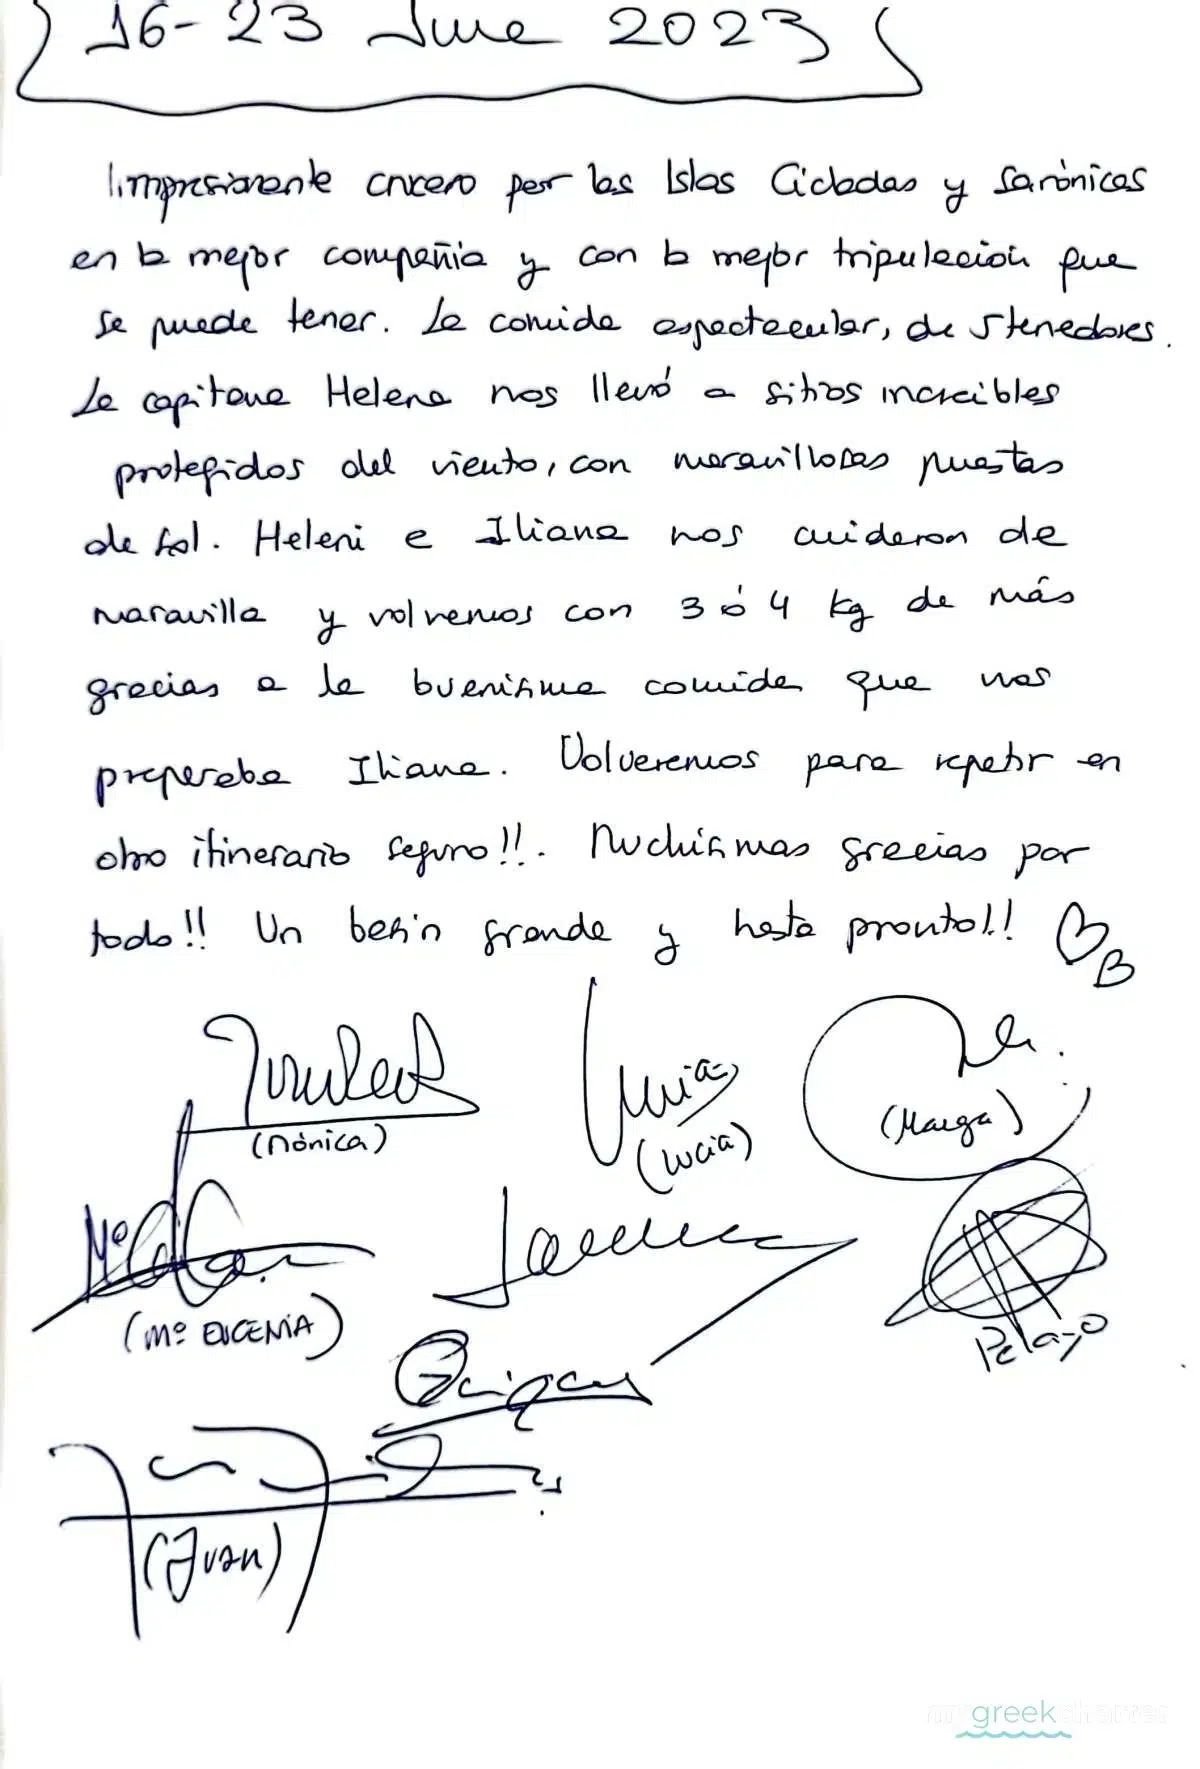 16-23 June 2023
Impresionante crucero por las Islas Cicladas y Sarónicas
en la mejor compañia y con la mejor tripulación que
se puede tener. La comida espectacular, de 5 tenedores.
La capitana Helena nos llevó a sitios increibles
protegidos del viento, con maravillosas puestas
de sol. Heleni e Iliana nos cuidaron de
maravilla y volvemos con 3 ó 4 kg de más
gracias a la buenisima comida que nos
preparaba Iliana. Volveremos para repetir en
otro itinerario seguro!!. Muchisimas gracias por
todo!! Un besin grande y hasta pronto!!
(Mónica)
Lucia
(Lucia)
(Marga)
(Mª EUGENIA)
Pelayo
(Juan)
mygreekcharter